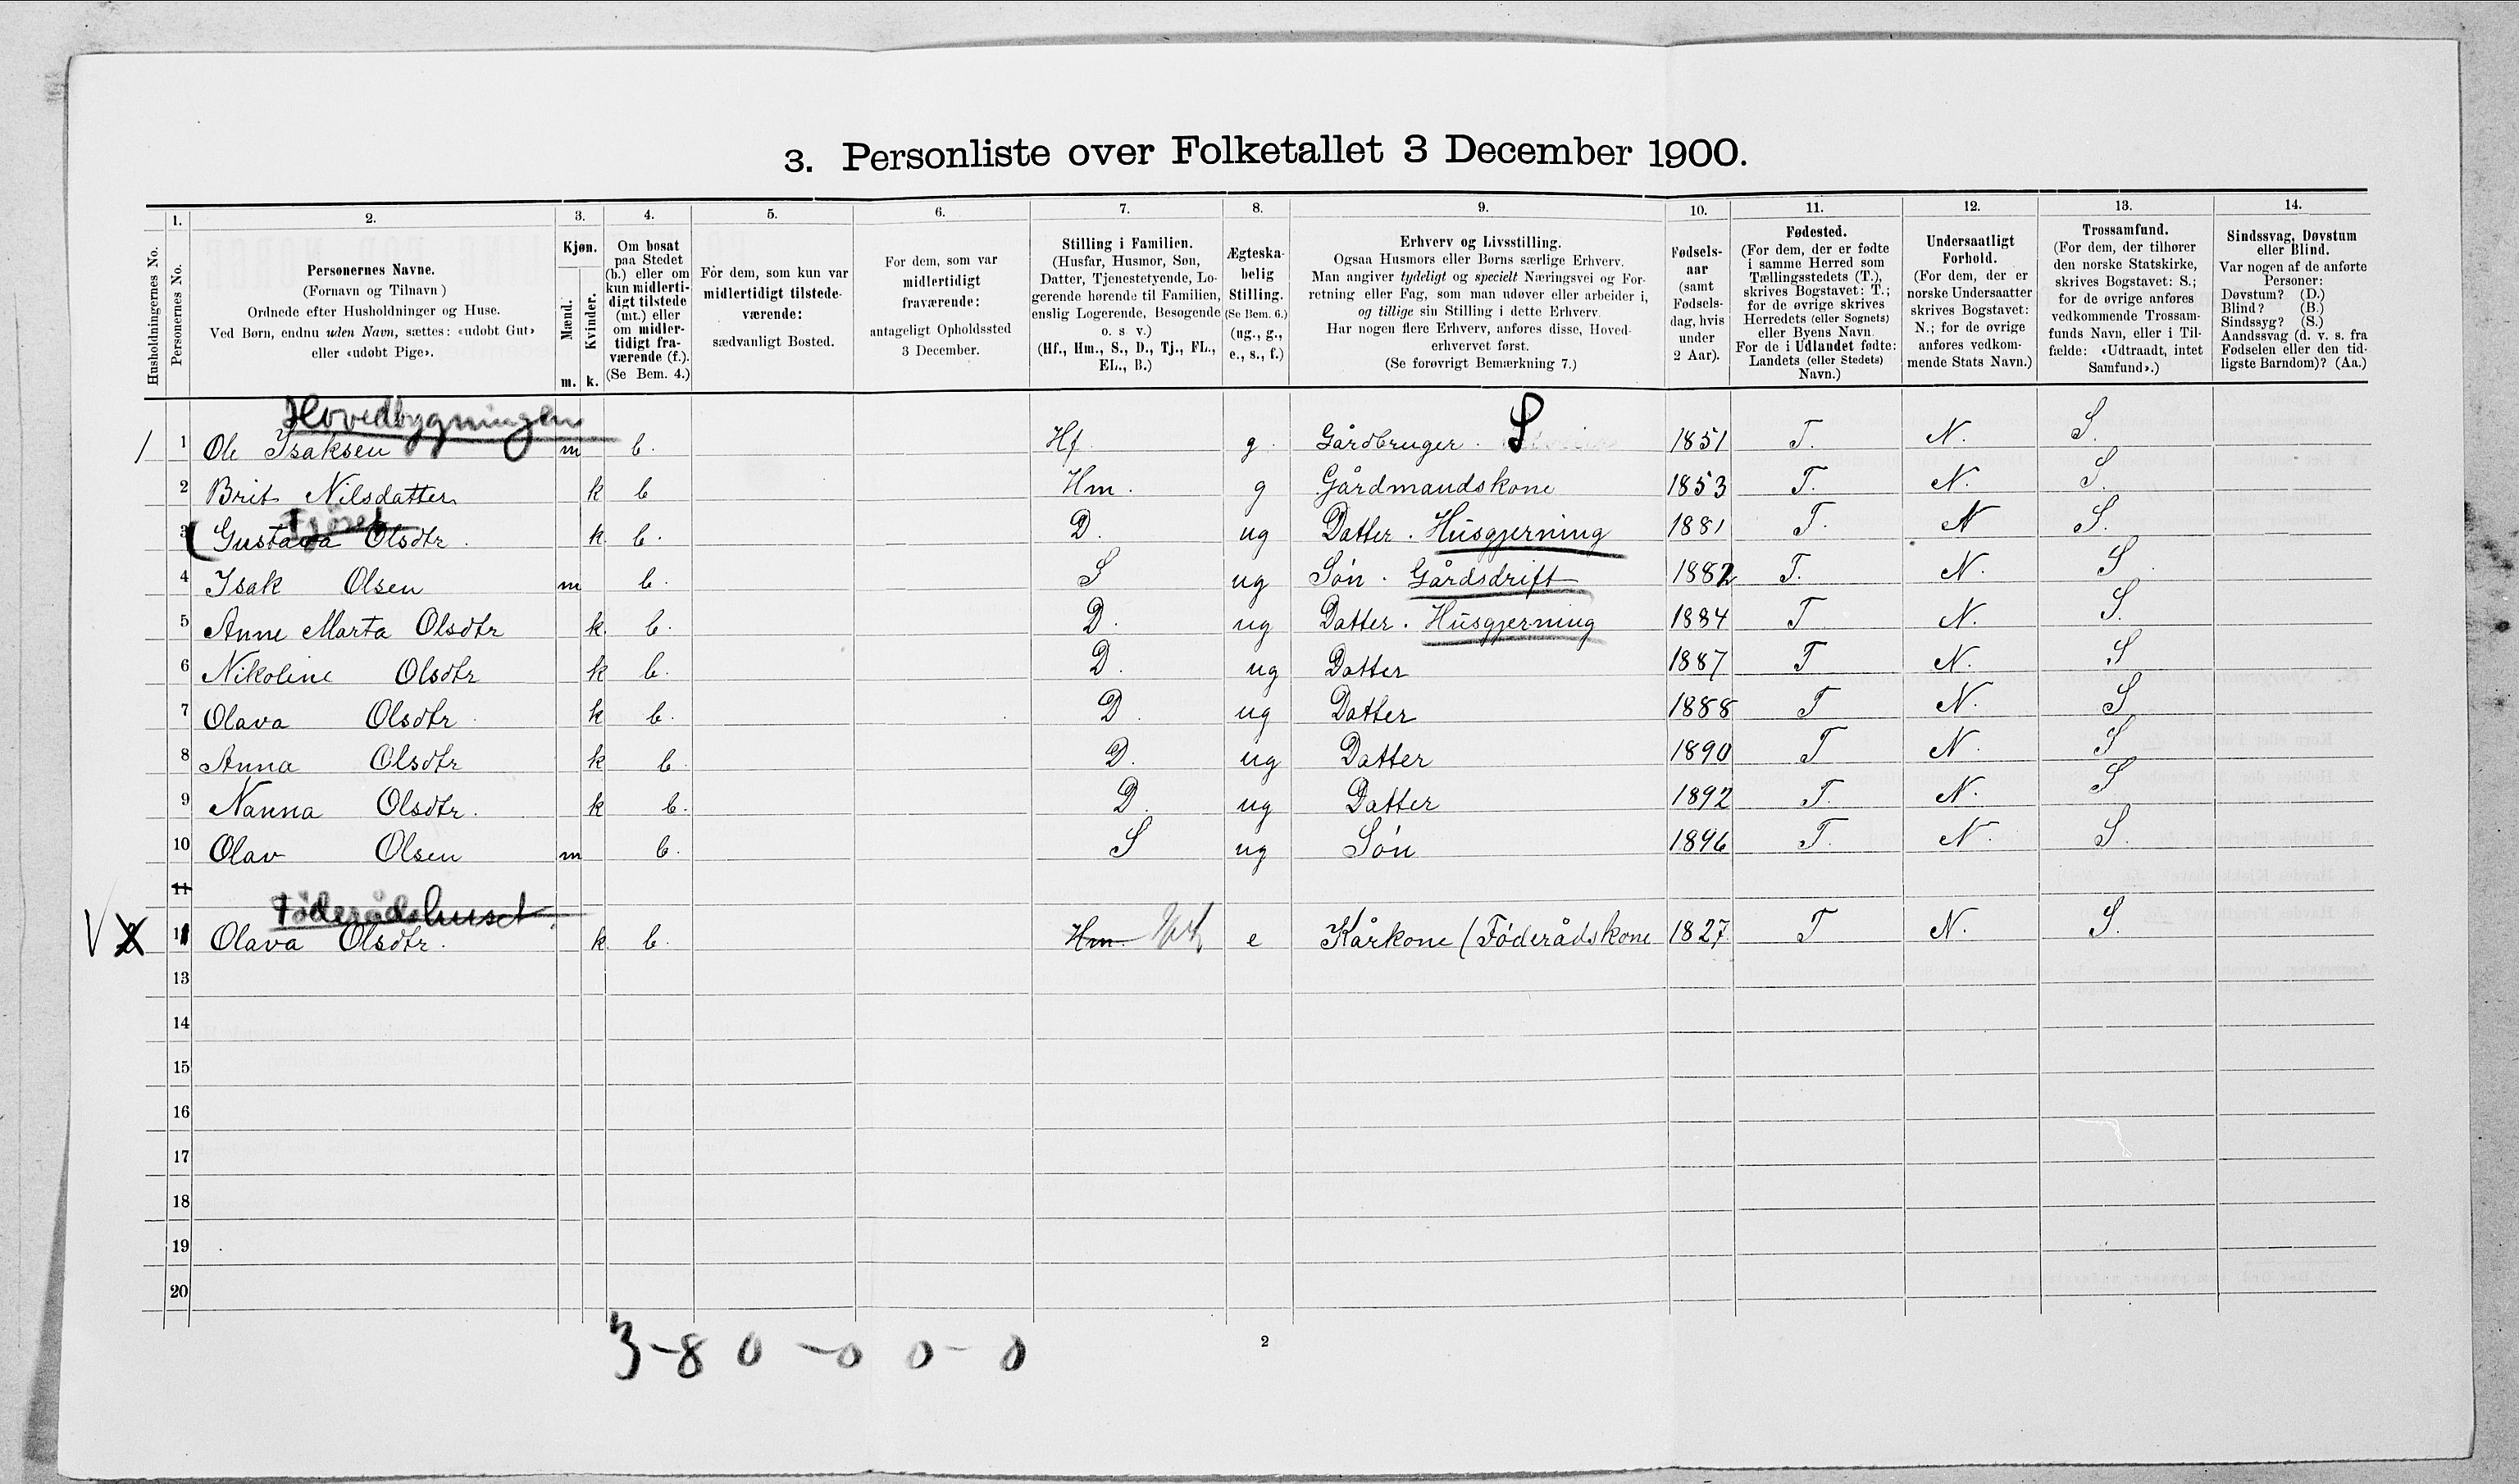 3. Personliste over Folketallet 3 December 1900.
Husholdningernes No.
1. Personernes No.
2. Personernes Navne.
(Fornavn og Tilnavn)
Ordnede efter Husholdninger og Huse.
Ved Børn, endnu uden Navn, sættes: «udøbt Gut»
eller «udøbt Pige».
3. Kjøn.
Mænd. m.
Kvinder. k.
4. Om bosat
paa Stedet
(b.) eller om
kun midlerti-
digt tilstede
(mt.) eller
om midler-
tidigt fra-
værende (f.).
(Se Bem. 4.)
5. For dem, som kun var
midlertidigt tilstede-
værende:
sædvanligt Bosted.
6. For dem, som var
midlertidigt
fraværende:
antageligt Opholdssted
3 December.
7. Stilling i Familien.
(Husfar, Husmor, Søn,
Datter, Tjenestetyende, Lo-
gerende hørende til Familien,
enslig Logerende, Besøgende
o. s. v.)
(Hf., Hm., S., D., Tj., FL.,
EL., B.)
8. Ægteska-
belig
Stilling.
(Se Bem. 6.)
(ug., g.,
e., s., f.)
9. Erhverv og Livsstilling.
Ogsaa Husmors eller Børns særlige Erhverv.
Man angiver tydeligt og specielt Næringsvei og For-
retning eller Fag, som man udøver eller arbeider i,
og tillige sin Stilling i dette Erhverv.
Har nogen flere Erhverv, anføres disse, Hoved-
erhvervet først.
(Se forøvrigt Bemærkning 7.)
10. Fødsels-
aar
(samt
Fødsels-
dag, hvis
under
2 Aar).
11. Fødested.
(For dem, der er fødte
i samme Herred som
Tællingsstedets (T.),
skrives Bogstavet: T.;
for de øvrige skrives
Herredets (eller Sognets)
eller Byens Navn.
For de i Udlandet fødte:
Landets (eller Stedets)
Navn.)
12. Undersaatligt
Forhold.
(For dem, der er
norske Undersaatter
skrives Bogstavet:
N.; for de øvrige
anføres vedkom-
mende Stats Navn.)
13. Trossamfund.
(For dem, der tilhører
den norske Statskirke,
skrives Bogstavet: S.;
for de øvrige anføres
vedkommende Trossam-
funds Navn, eller i Til-
fælde: «Udtraadt, intet
Samfund».)
14. Sindssvag, Døvstum
eller Blind.
Var nogen af de anførte
Personer:
Døvstum? (D.)
Blind? (B.)
Sindssyg? (S.)
Aandssvag (d. v. s. fra
Fødselen eller den tid-
ligste Barndom)? (Aa.)
Hovedbygningen
1 1 Ole Isaksen m b. Hf. g. Gårdbruger. S 1851 T. N. S.
2 Brit Nilsdatter k b Hm. g Gårdmandskone 1853 T. N. S.
3 Gustava Olsdtr. k. b. D. ug Datter. Husgjerning 1881 T. N S.
4 Isak Olsen m b. S ug Søn. Gårdsdrift 1882 T. N. S
5 Anne Marta Olsdtr k. b. D. ug Datter. Husgjerning 1884 T N. S.
6 Nikoline Olsdtr k b. D. ug Datter 1887 T N. S
7 Olava Olsdtr. k b. D. ug Datter 1888 T N. S
8 Anna Olsdtr k b. D. ug Datter 1890 T N. S
9 Nanna Olsdtr. k b. D. ug Datter 1892 T. N. S
10 Olav Olsen m b. S ug Søn 1896 T. N. S.
11
Føderådshuset
Olava Olsdtr. k b. Hm. e Kårkone (Føderådskone 1827 T N. S.
13
14
15
16
17
18
19
20
3-8 0-0 0-0
2